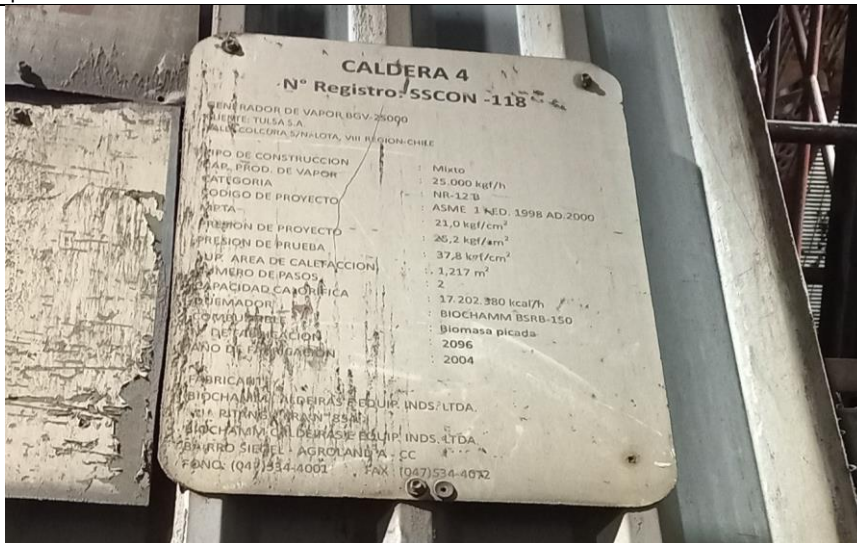 CALDERA 4
N° Registro: SSCON -118
GENERADOR DE VAPOR BGV-25000
TULSA S.A.
COLCURA S/N LOTA, VIII REGION-CHILE
TIPO DE CONSTRUCCION : Mixto
CAP. PROD. DE VAPOR : 25.000 kgf/h
CATEGORIA : NR-12 B
CODIGO DE PROYECTO : ASME 1 ED. 1998 AD.2000
21,0 kgf/cm²
PRESION DE PROYECTO : 26,2 kgf/cm²
PRESION DE PRUEBA : 37,8 kgf/cm²
SUP. AREA DE CALEFACCION : 1,217 m²
NUMERO DE PASOS : 2
CAPACIDAD CALORIFICA : 17.202.380 kcal/h
QUEMADOR : BIOCHAMM BSRB-150
COMBUSTIBLE : Biomasa picada
DE FABRICACION : 2096
AÑO DE FABRICACION : 2004
FABRICANTE
BIOCHAMM CALDEIRAS E EQUIP. INDS. LTDA.
BIOCHAMM CALDEIRAS E EQUIP. INDS. LTDA.
BAIRRO SIEGEL - AGROLANDIA - CC
FONO: (047)534-4001 FAX : (047)534-4072